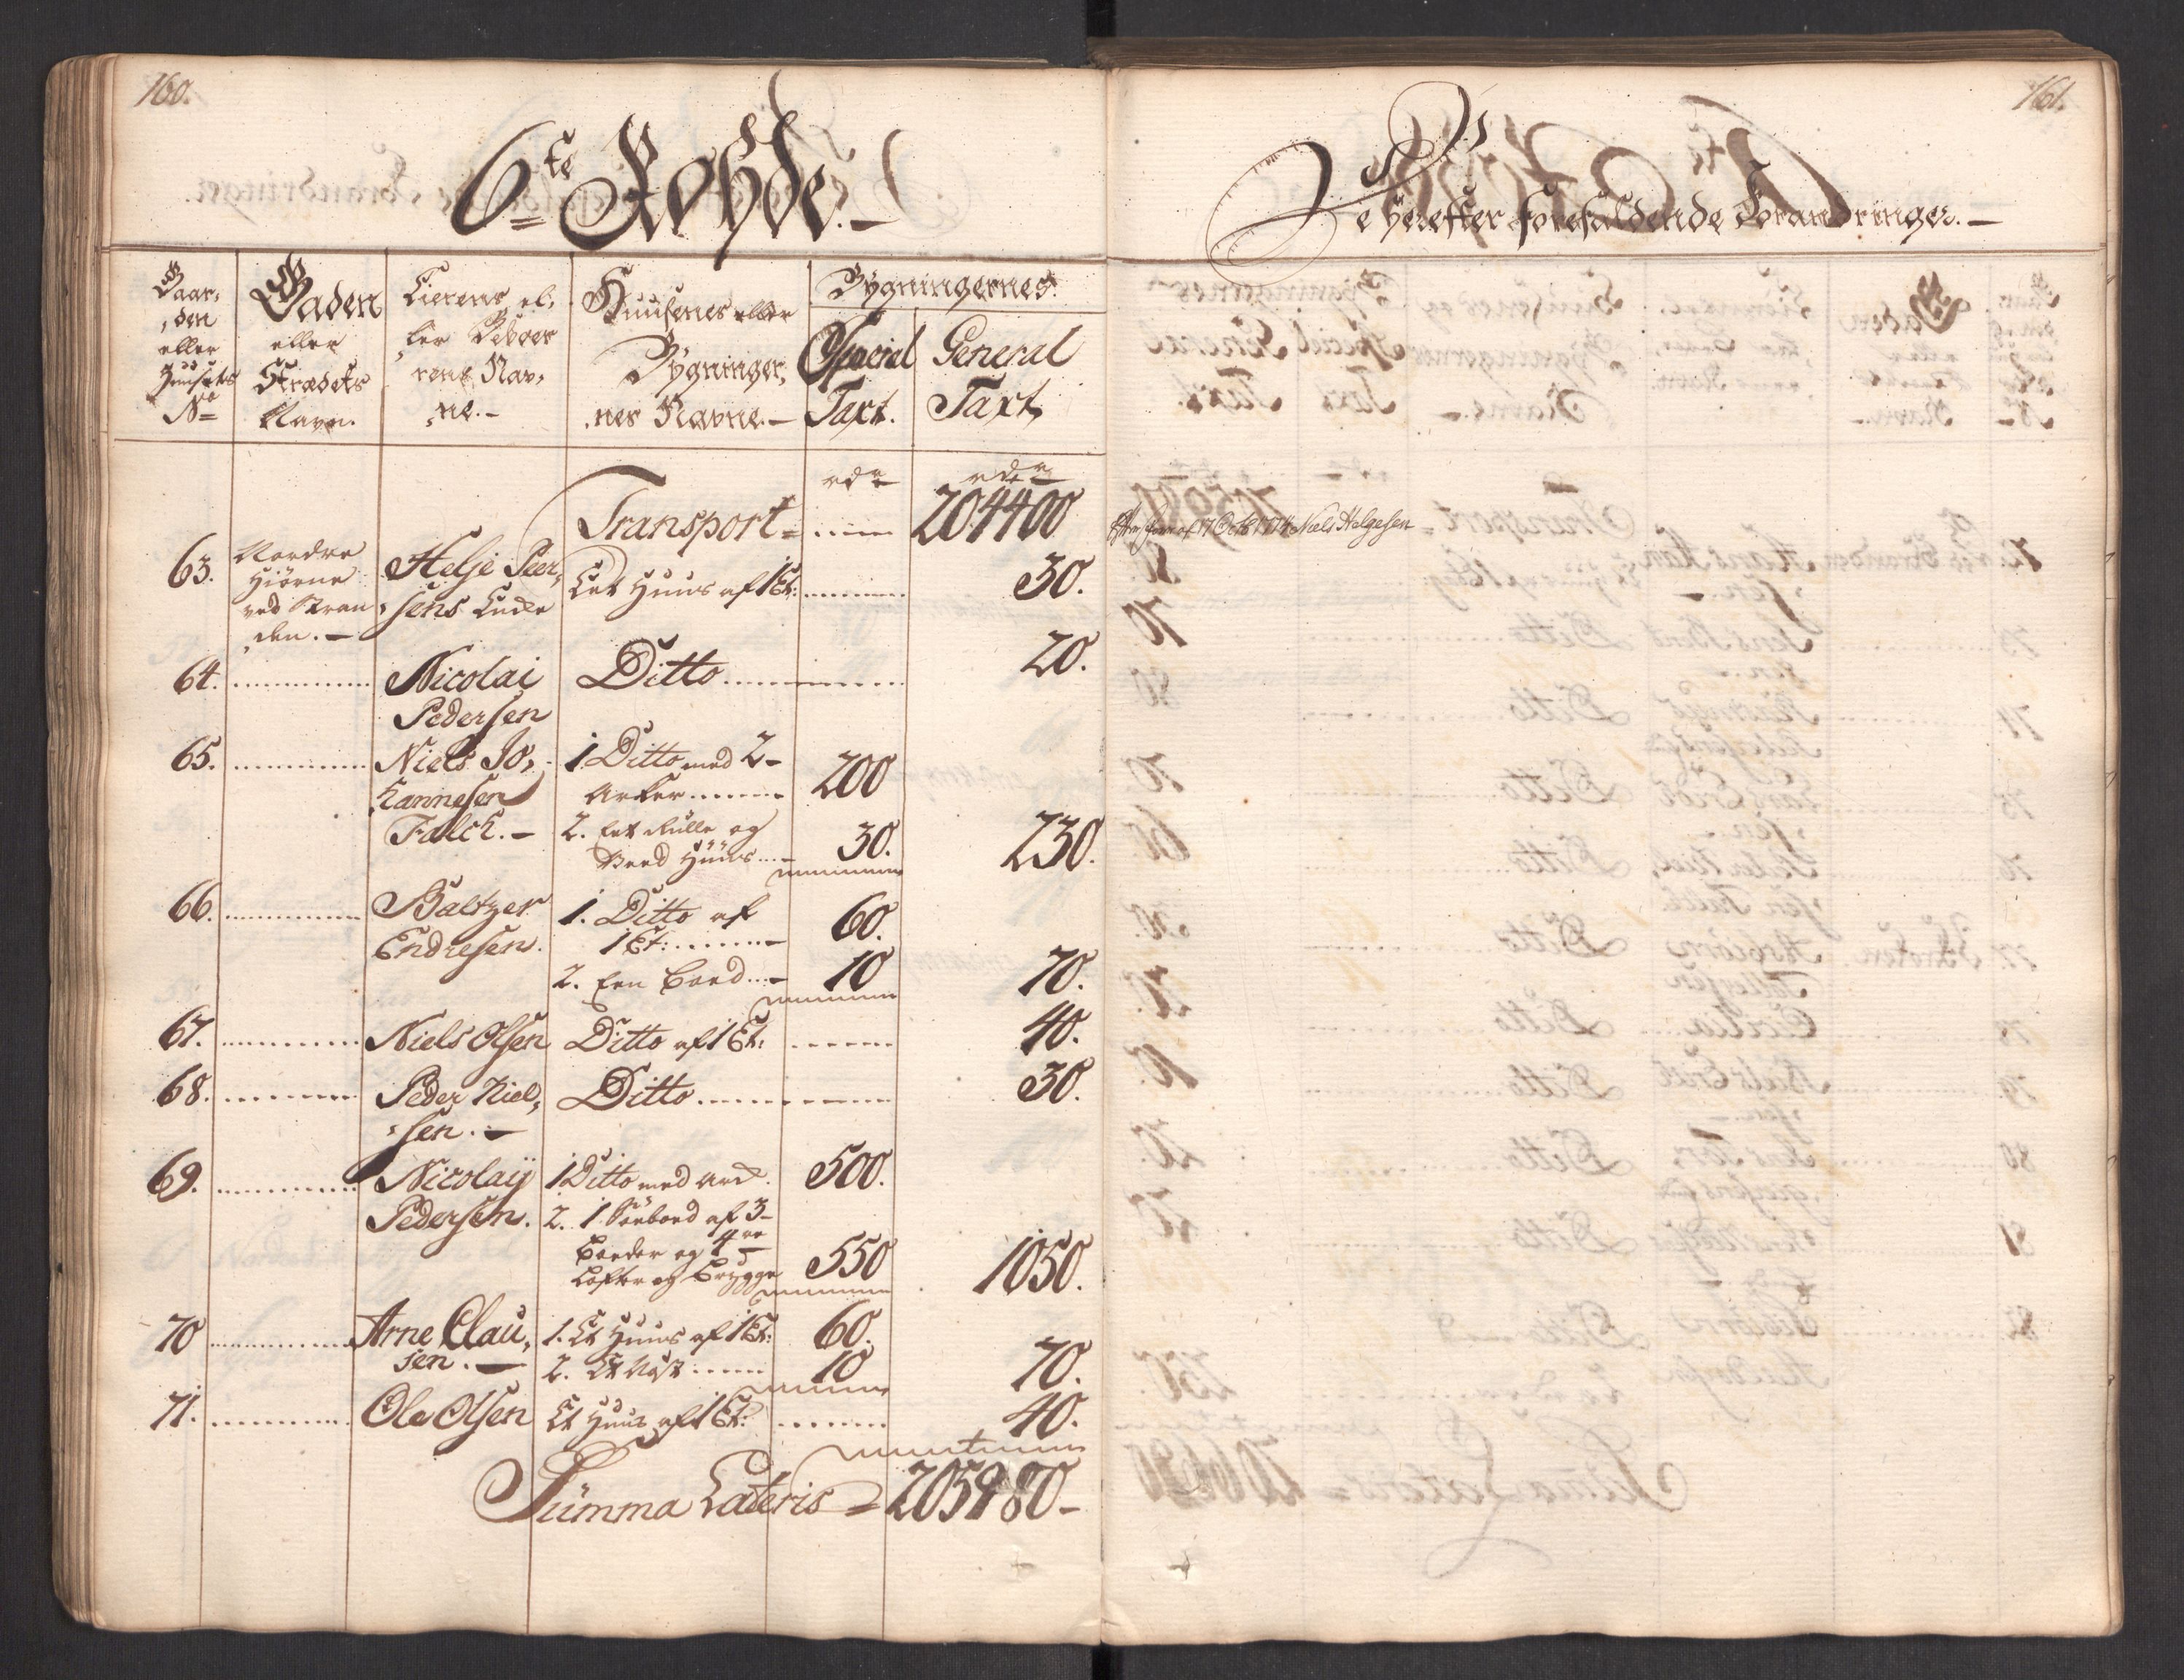 160.
6te Rohde.
Gaar,
,den
eller
Huusets
No
Gaden
eller
Strædets
Navn.
Eierens el,
ler Beboer
rens Nav,
ne.
Huusenes eller
Bygninger,
nes Navne.
Bygningernes
Special
Taxt.
General
Taxt.
rdr
rdr
Transport = 204400
63. Nordre
Hiørne
ved Stran
den. Helje Peer,
sens Enke Eet Huus af 1 Et: 30.
64. Nicolai
Pedersen Ditto 20.
65. Niels Jo,
hannesen
Falch. 1 Ditto med 2
Arker 200
2. Eet Rulle og
Brend Huus 30. 230.
66. Baltzer
Endresen. 1. Ditto af
1 Et: 60.
2. Een Boed 10 70.
67. Niels Olsen Ditto af 1 Et: 40.
68. Peder Niel,
sen. Ditto 30.
69. Nicolaij
Pedersen. 1 Ditto med Ark 500.
2. 1 Søeboed af 3
Boeder og 4re
Lofter og Brygge 550 1050.
70 Arne Clau,
sen. 1. Et Huus af 1 Et: 60.
2. Et Nøst 10 70.
71. Ole Olsen Et Huus af 1 Et: 40.
Summa Lateris = 205980
161.
De herefter forefaldende Forandringer.
17 Octbr 1774 Niels Helgesen